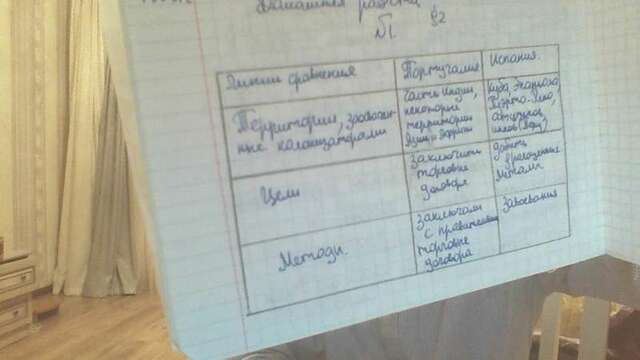 Домашняя работа
№1 §2
Линии сравнения
Португалия
Испания.
Территории, захвачен-
ные колонизаторами
Часть Индии,
некоторые
территории
Азии и Африки
Куба,
Пуэрто-Рико,
Цели
Заключить
торговые
договора
добыть
драгоценные
металлы
Методы.
Заключали
с правителями
торговые
договора
Завоевания